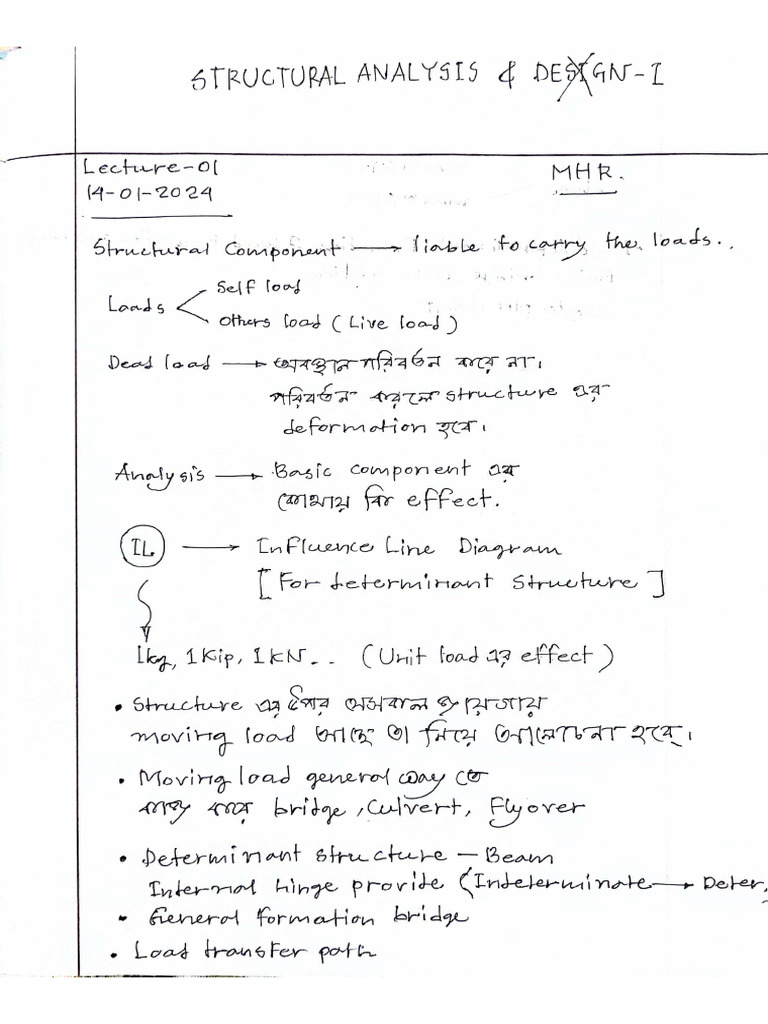 STRUCTURAL ANALYSIS & DESIGN-I
Lecture-01
14-01-2024
MHR.
Structural Component → liable to carry the loads..
Loads
Self load
Others load (Live load)
Dead load → অবস্থান পরিবর্তন করে না।
পরিবর্তন করলে structure এর
deformation হবে।
Analysis → Basic component এর
কোথায় কি effect.
IL → Influence Line Diagram
[For determinant structure]
1kg, 1Kip, 1KN.. (Unit load এর effect)
• Structure এর উপর
moving load আছে তা নিয়ে আলোচনা হবে।
• Moving load general way তে
কাজ করে bridge, Culvert, Flyover
• Determinant structure — Beam
Internal hinge provide (Indeterminate → Deter,
• General formation bridge
• Load transfer path